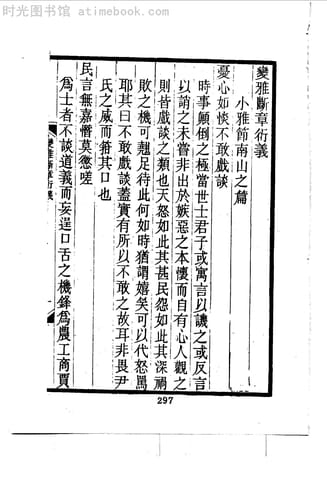 时光图书馆 - atimebook.com
變雅斷章衍義
小雅節南山之篇
憂心如惔不敢戲談
時事顛倒之極當世士君子或寓言以譏之或反言
以誚之未嘗非出於嫉惡之本懷而自有心人觀之
則皆戲談之類也天怒如此其甚民怨如此其深禍
敗之機可翹足待此何如時猶謂嬉笑可以代怒罵
耶其曰不敢戲談蓋實有所以不敢之故耳非畏尹
氏之威而箝其口也
民言無嘉憯莫懲嗟
爲士者不談道義而妄逞口舌之機鋒爲農工商賈
變雅斷章衍義
一
297